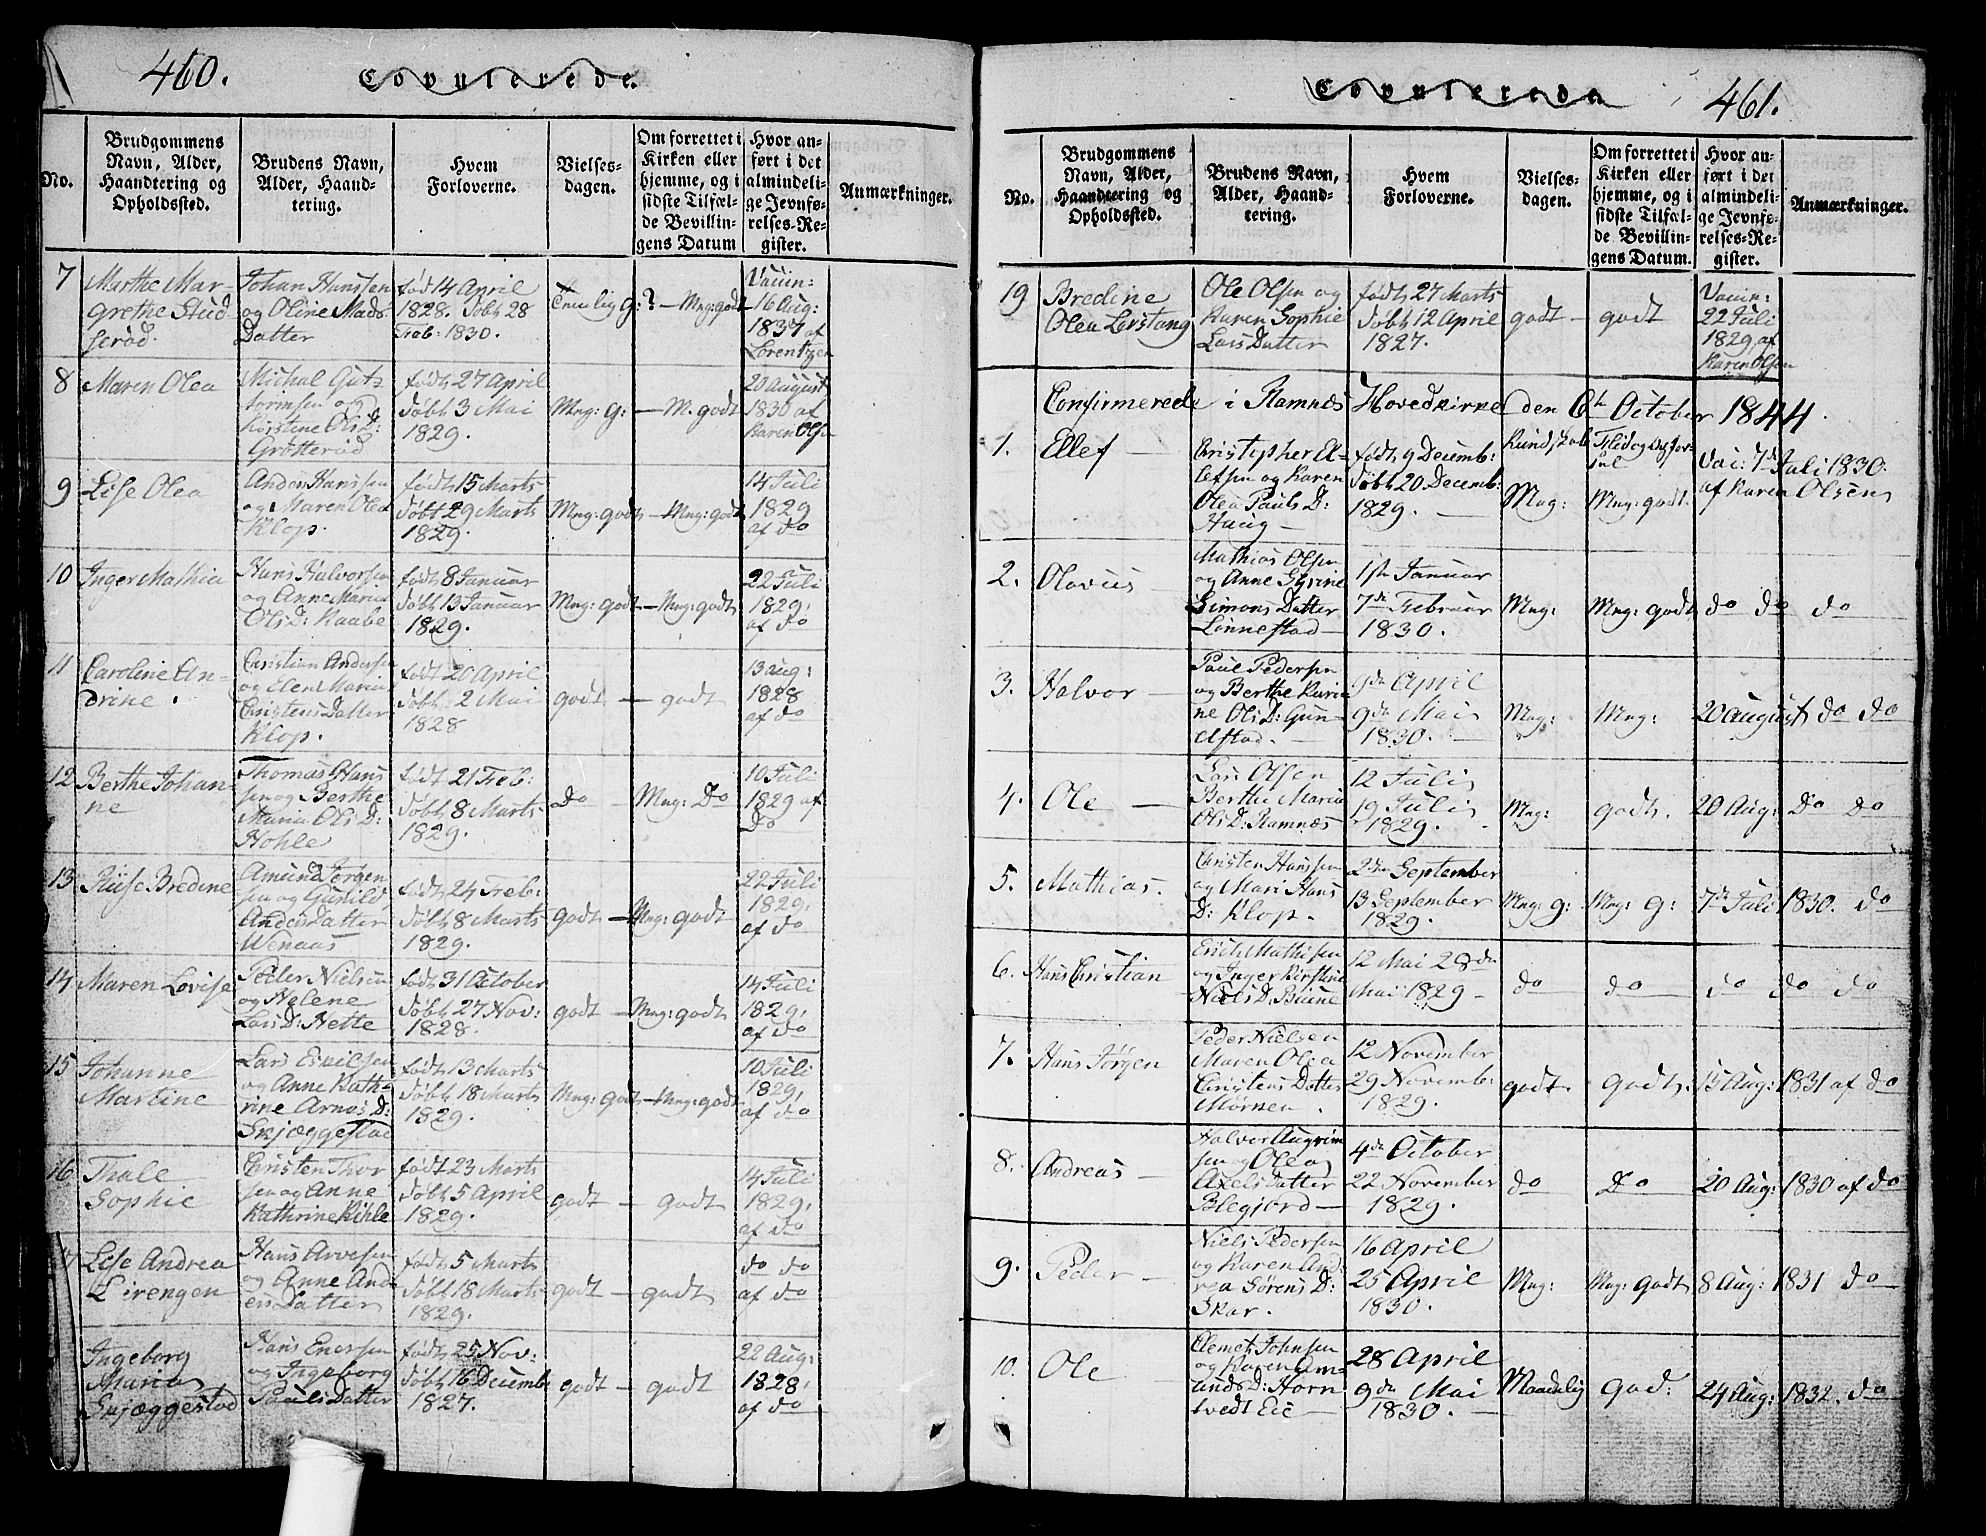 460.
Copulerede.
No.
Brudgommens
Navn, Alder,
Haandtering og
Opholdssted.
Brudens Navn,
Alder, Haand-
tering.
Hvem
Forloverne.
Vielses-
dagen.
Om forrettet i
Kirken eller
hjemme, og i
sidste Tilfæl-
de Bevillin-
gens Datum
Hvor an-
ført i det
almindeli-
ge Jevnfø-
relses-Re-
gister.
Anmærkninger.
7
Marthe Mar-
grethe Stud-
serød.
Johan Hanssen
og Oline Mads
Datter
fød 14 April
1828. Døbt 28
Feb: 1830.
Temlig g: ? — Mng: godt
Vaccin:
16 Aug:
1837 af
Lorentzen
8
Maren Olea
Michal Gut-
tormsen og
Kirstine Ols D:
Grøtterød
født 27 April
Døbt 3 Mai
1829.
Mng: g: — M. godt
20 August
1830 af
Karen Olsen
9
Lise Olea
Anders Hanssen
og Maren Olea
Klop.
født 15 Marts
Døbt 29 Marts
1829.
Mng: godt — Mng: godt
14 Juli
1829
af do
10
Inger Mathia
Hans Halvorsen
og Anne Maria
Ols D: Raabe
født 8 Januar
Døbt 13 Januar
1829.
Mng: godt — Mng: godt
22 Juli
1829,
af do
11
Caroline An-
drine.
Christian Andersen
og Elen Maria
Christens Datter
Klop.
født 20 April
Døbt 2 Mai
1828
godt — godt
13 aug:
1828
af do
12
Berthe Johan-
ne
Thomas Hans
sen og Berthe
Maria Ols D:
Hohle
født 21 Feb:
Døbt 8 Marts
1829.
Do — Mng: Do
10 Juli
1829 af
Do
13
Riise Bredine
Amund Jørgen
sen og Gunild
Anders Datter
Wenaas
født 24 Feb:
Døbt 8 Marts
1829.
godt — Mng: godt
22 Juli
1829,
af do
14
Maren Lovise
Peder Nielsen
og Helene
Lars D: Nette
født 31 October
Døbt 27 Nov:
1828.
godt — Mng: godt
14 Juli
1829,
af do
15
Johanne
Martine
Lars Eskilsen
og Anne Kath-
rine Arnos D:
Skjæggestad
født 13 Marts
Døbt 18 Marts
1829.
Mng: godt — Mng: godt
10 Juli
1829,
af do
16
Thale
Sophie
Christen Thor
sen og Anne
Kathrine Kihle
født 23 Marts
Døbt 5 April
1829.
godt — godt
14 Juli
1829,
af do
Lise Andrea
Lirengen
Hans Arvesen
og Anne And
ers Datter
født 5 Marts
Døbt 18 Marts
1829.
godt — godt
do do
af do
Ingeborg
Maria
Skjæggestad
Hans Enersen
og Ingeborg
Pauls Datter
født 25 Nov:
Døbt 16 Decemb
1827.
godt — godt
22 Aug:
1828,
af do
Copulerede
461.
No.
Brudgommens
Navn, Alder,
Haandtering og
Opholdssted.
Brudens Navn,
Alder, Haand-
tering.
Hvem
Forloverne.
Vielses-
dagen.
Om forrettet i
Kirken eller
hjemme, og i
sidste Tilfæl-
de Bevillin-
gens Datum.
Hvor an-
ført i det
almindeli-
ge Jevnfø-
relses-Re-
gister.
Anmærkninger.
19
Bredine
Olea Lerstang
Ole Olsen og
Karen Sophie
Lars Datter
født 27 Marts
Døbt 12 April
1827.
godt — godt
Vaccin:
22 Juli
1829 af
Karen Olsen
Confirmerede i Ramnæs Hovedkirke den 6te October 1844.
Kundskab
Flid og
1.
Ellef —
Christopher El-
lefsen og Karen
Olea Pauls D:
Haug —
født 9 Decemb:
Døbt 20 Decemb:
1829. —
Mng:
Mng: godt.
Vac: 7de Juli 1830.
af Karen Olsen
2.
Olavus
Mathias Olsen
og Anne Gurine
Simons Datter
Linnestad —
1ste Januar
7de Februar
1830.
Mng:
Mng: godt
do do do
3.
Halvor —
Paul Pedersen
og Berthe Kari
ne Ols D: Gun
elstad. —
9de April
9de Mai
1830. —
Mng:
Mng:
20 August do do
4.
Ole —
Lars Olsen
Berthe Maria
Ols D: Ramnæs
12 Juli
19 Juli
1829. —
Mng:
godt.
20 Aug: Do Do
5.
Mathias.
Christen Hanssen
og Mari Hans
D: Klop.
2den September
13 September
1829.
Mng: g:
Mng: g:
7de Juli 1830. do
6.
Hans Christian
Erich Mathisen
og Inger Kirstine
Niels D: Brune
12 Mai 28de
Mai 1829 —
do
do
do do do
7.
Hans Jørgen
Peder Nielsen
Maren Olea
Christens Datter
Mørken.
12 November
29 Novemb:
1829.
godt.
godt.
15 Aug: 1831 af do
8.
Andreas —
Halvor Augrim
sen og Olea
Axels Datter
Blegjord —
4de October
22 November
1829.
do
Do
20 Aug: 1830 af do
9.
Peder —
Niels Pedersen
og Karen And
rea Sørens D:
Skar.
16 April
25 April
1830.
Mng:
Mng: godt
8 Aug: 1831 do
10.
Ole —
Clemet Johnsen
og Karen Am-
unds D: Horn
tvedt Eie —
28 April
9de Mai
1830. —
Maadelig
god:
24 Aug: 1832. do